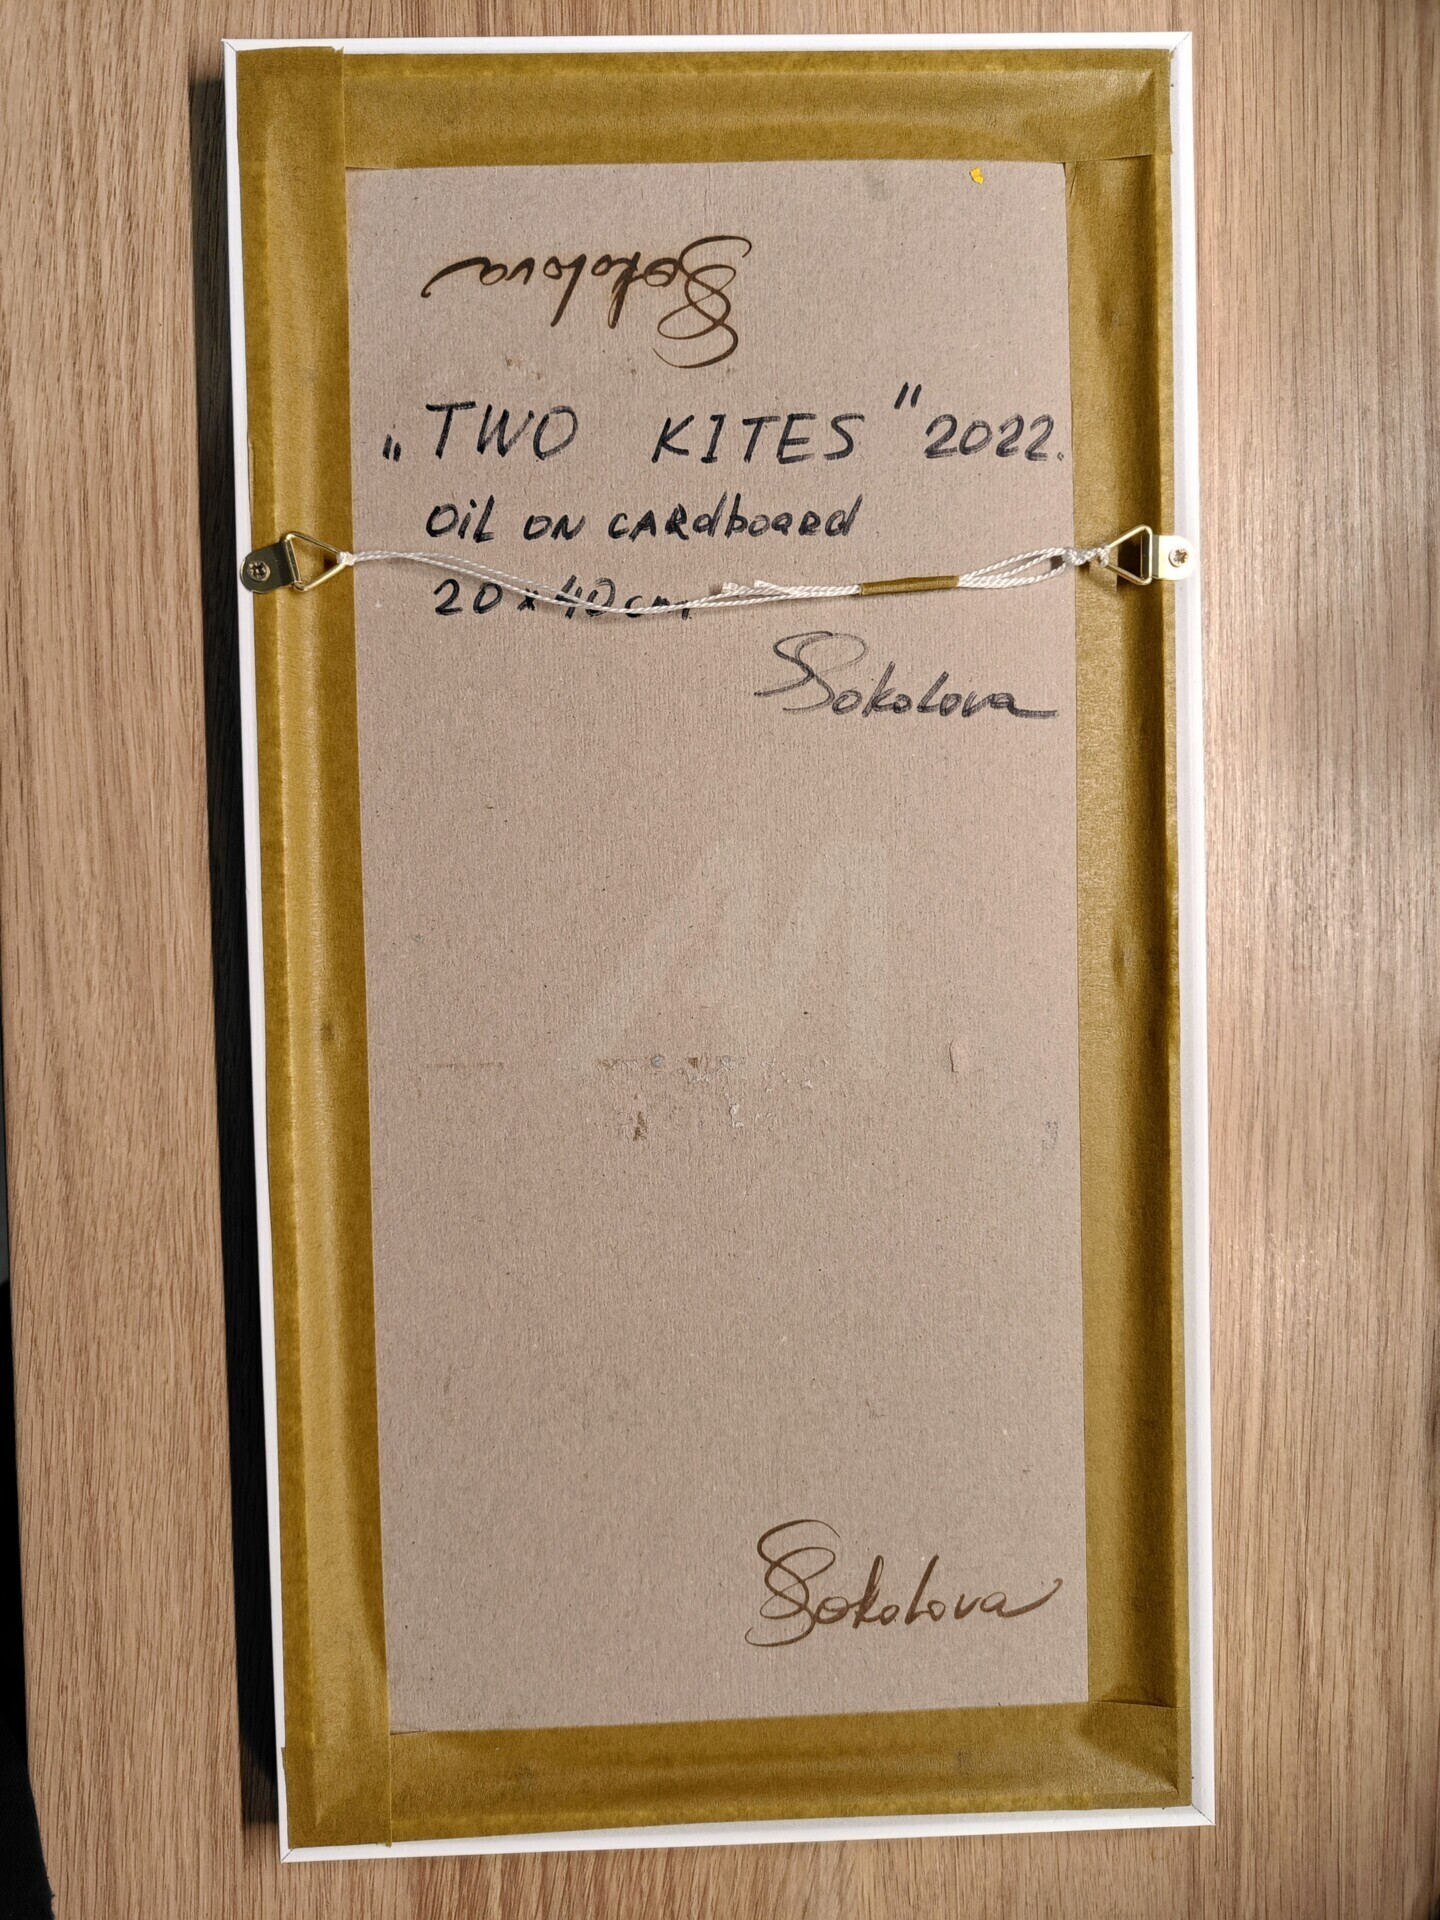 Sokolova
„TWO KITES" 2022.
OiL ON CARdboard
20 x 40 cm
SSokolova
Sokolova